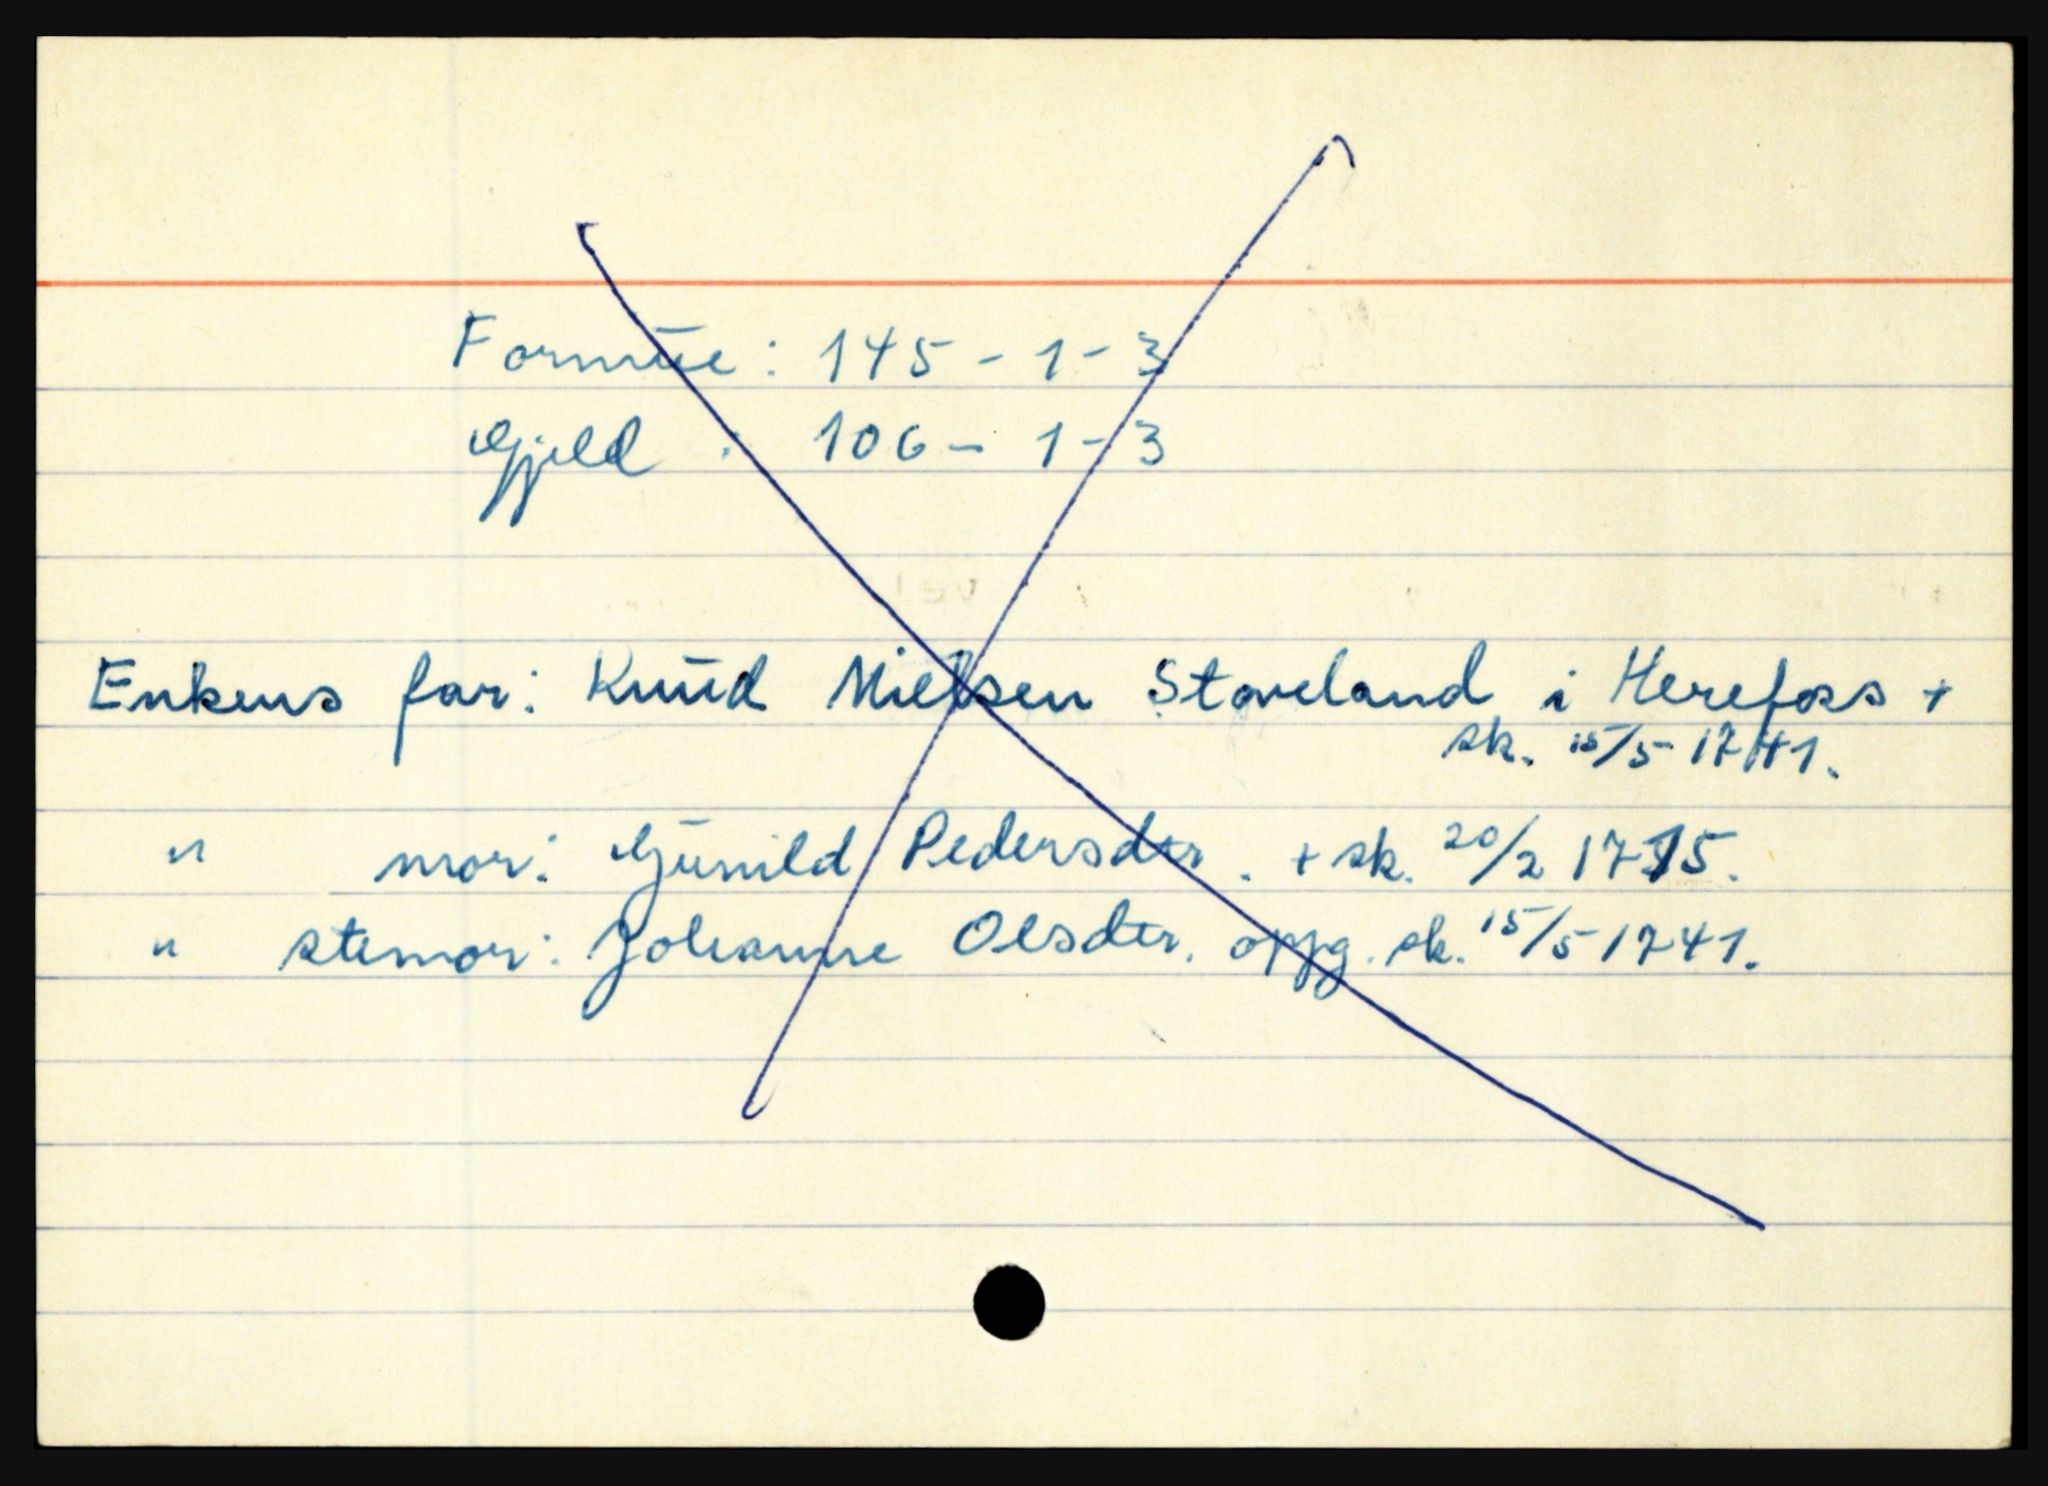 Formue: 145 - 1 - 3
Gjeld : 106 - 1 - 3
Enkens far: Knud Nielsen Staveland i Herefoss +
sk. 15/5 1741.
" mor: Gunild Pedersdtr. + sk. 20/2 1715.
" stemor: Johanne Olsdtr. oppg. sk. 15/5 1741.